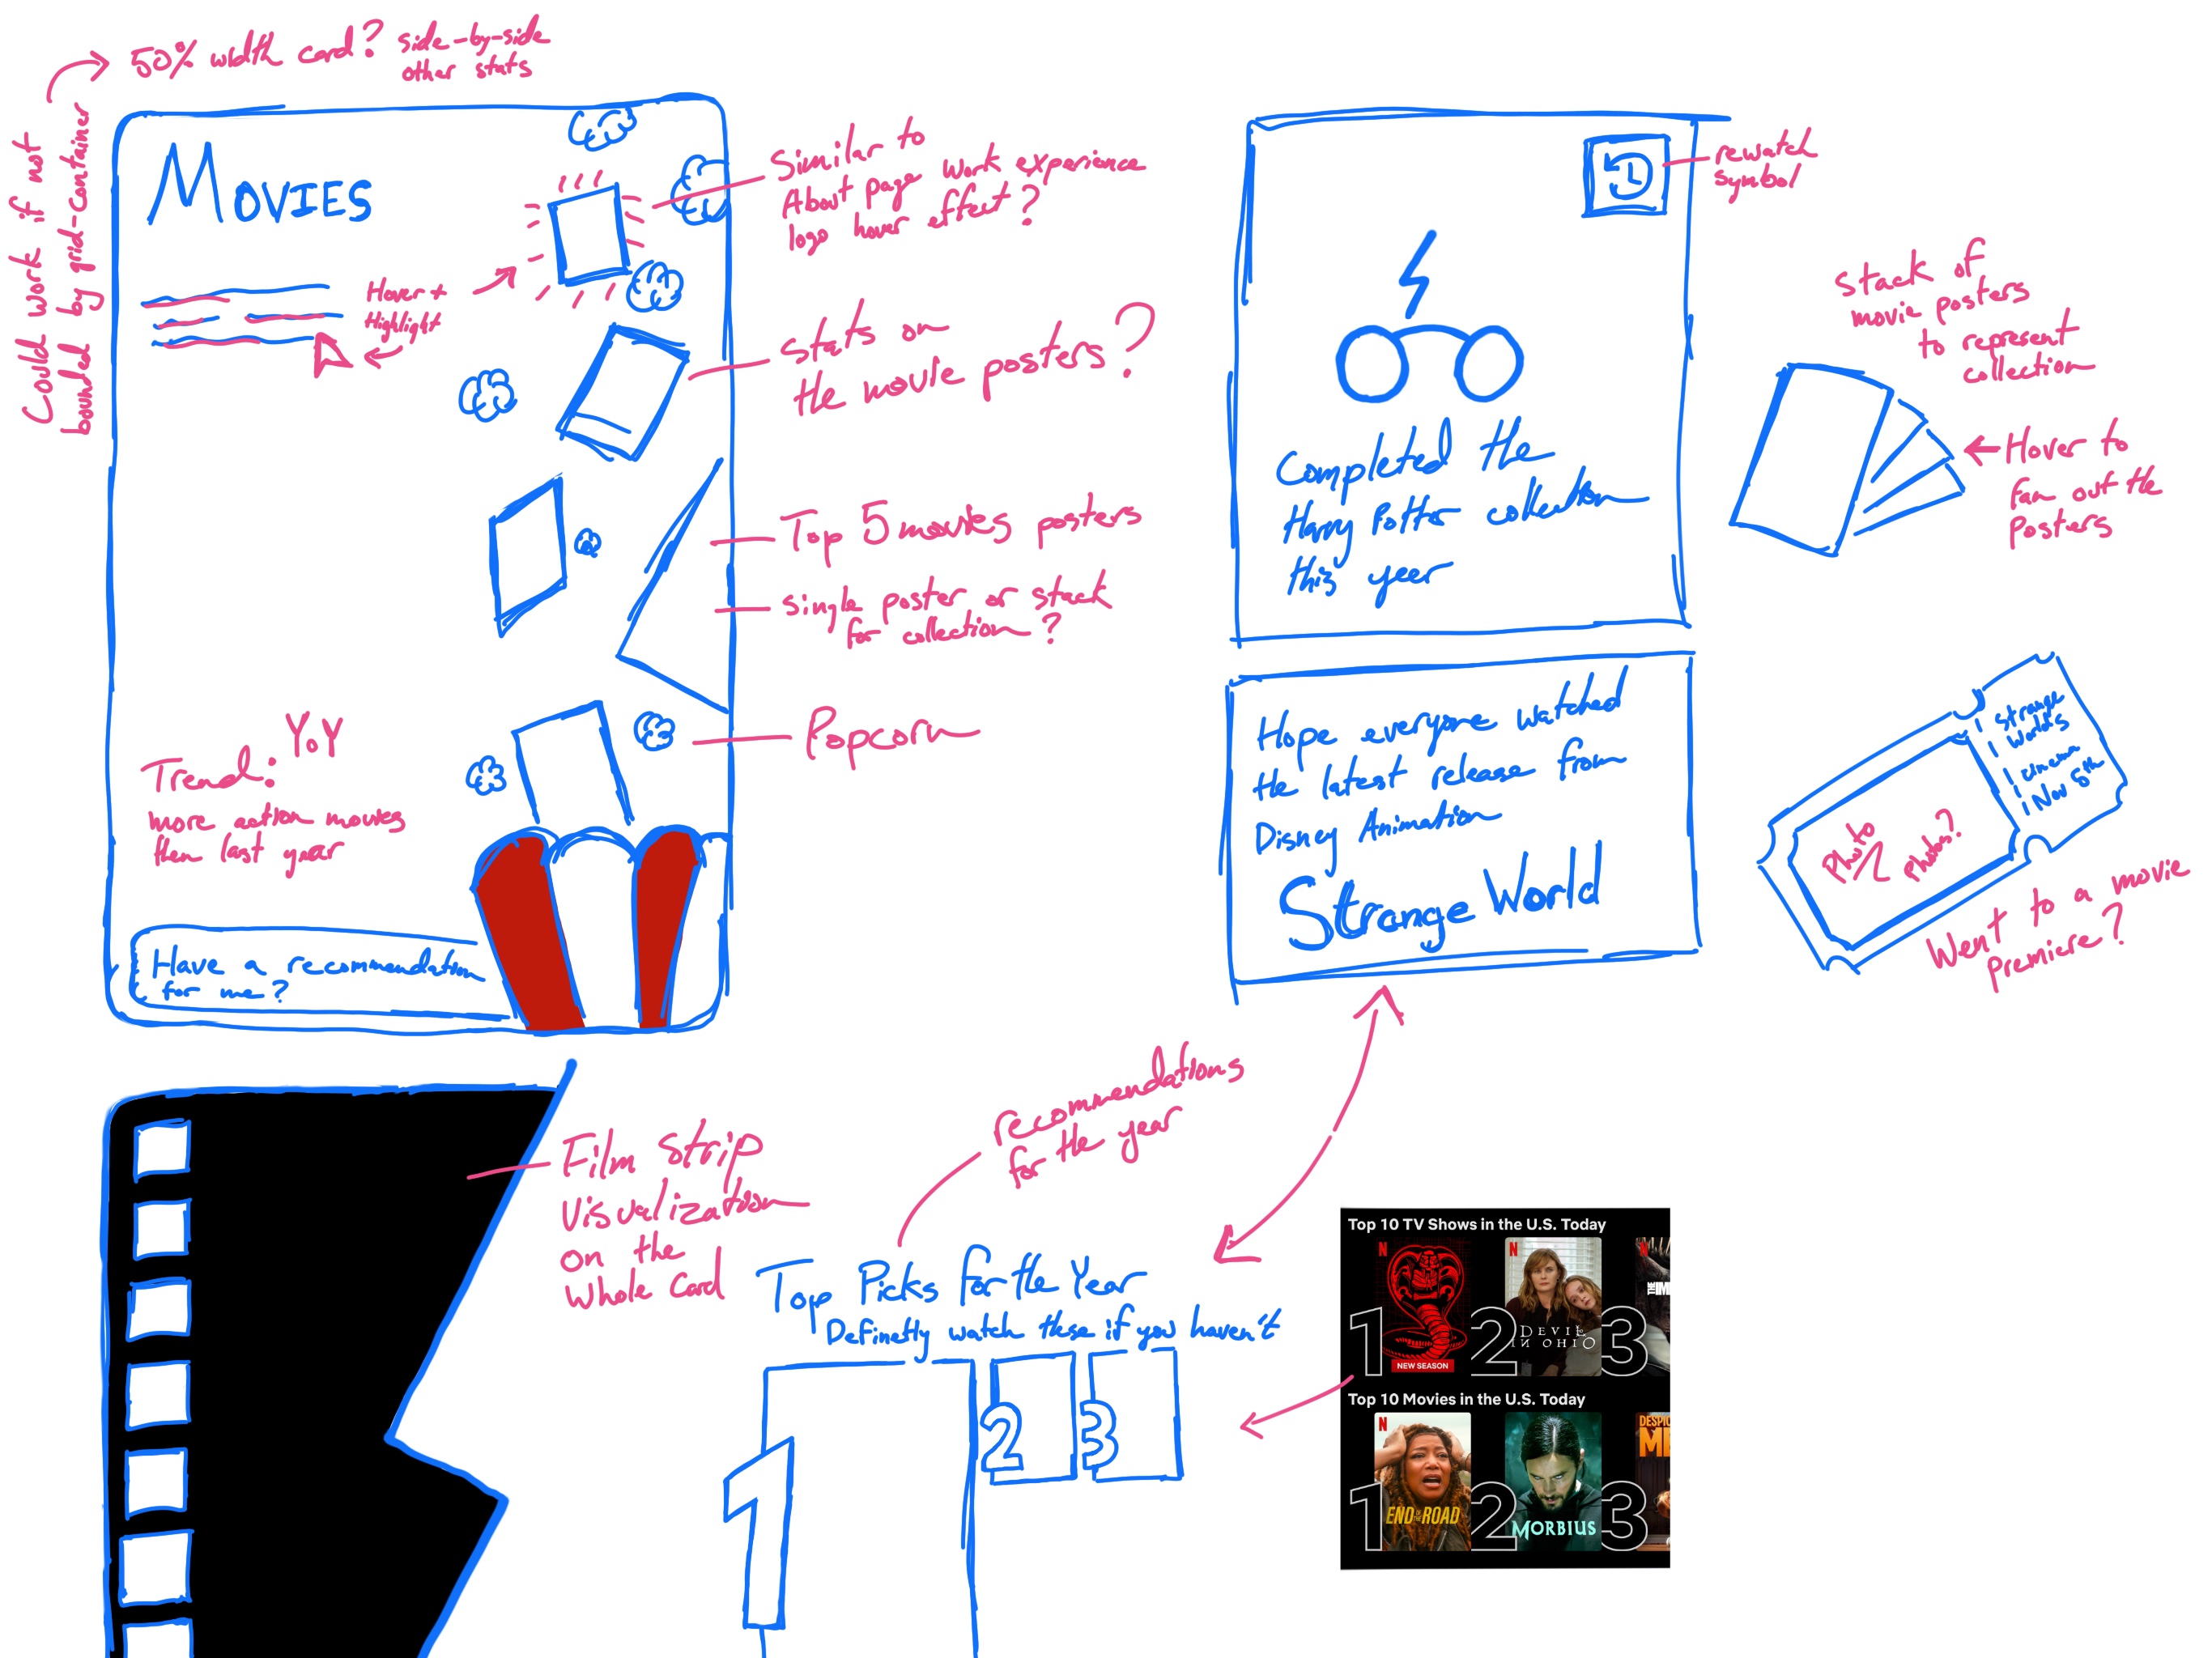 50% width card? side-by-side
other stats
Could work if not
bounded by grid-container
MOVIES
Hover +
Highlight
Similar to
About page work experience
logo hover effect?
Stats on
the movie posters?
Top 5 movies posters
single poster or stack
for collection?
Popcorn
Trend: YoY
more action movies
then last year
Have a recommendation
for me?
rewatch
symbol
Completed the
Harry Potter collection
this year
Stack of
movie posters
to represent
collection
Hover to
fan out the
Posters
Hope everyone watched
the latest release from
Disney Animation
Strange World
Strange
Worlds
cinema
Nov 8th
Photo
Photos?
Went to a movie
premiere?
Film Strip
Visualization
on the
Whole Card
recommendations
for the year
Top Picks for the Year
Definetly watch these if you haven't
1
2
3
Top 10 TV Shows in the U.S. Today
N
N
1
2
3
DEVIL
IN OHIO
NEW SEASON
Top 10 Movies in the U.S. Today
N
1
2
3
END OF THE ROAD
MORBIUS